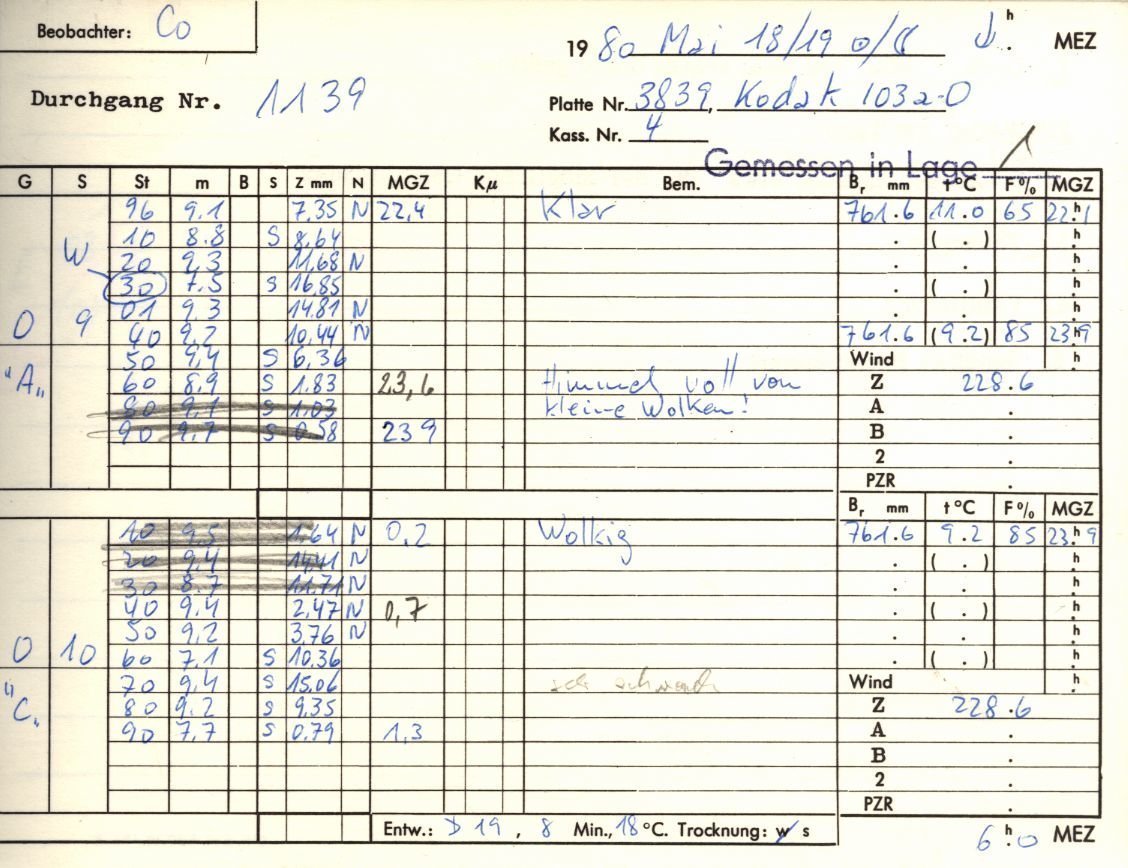 Beobachter: Co
19 80 Mai 18/19 h MEZ
Durchgang Nr. 1139
Platte Nr. 3839, Kodak 103a-O
Kass. Nr. 4
Gemessen in Lage 1
G S St m B S Z mm N MGZ Kμ Bem. Br mm t°C F% MGZ
96 9.1 7.35 N 22,4 Klar 761.6 11.0 65 22.h1
10 8.8 S 8.64 . ( . ) h
W 20 9.3 11.68 N . . h
30 7.5 S 16.85 . ( . ) h
01 9.3 14.81 N . . h
O 9 40 9.2 10.44 N 761.6 (9.2) 85 23.h9
50 9.4 S 6.36 Wind h
"A" 60 8.9 S 1.83 23,6 Himmel voll von Z 228.6
80 9.1 S 1.03 kleine Wolken! A .
90 9.7 S 0.58 239 B .
2 .
PZR .
Br mm t°C F% MGZ
10 9.5 1.64 N 0,2 Wolkig 761.6 9.2 85 23.h9
20 9.4 14.41 N . ( . ) h
30 8.7 11.71 N . . h
40 9.4 2.47 N 0,7 . ( . ) h
50 9.2 3.76 N . . h
O 10 60 7.1 S 10.36 . ( . ) h
70 9.4 S 15.06 schwach Wind h
"C" 80 9.2 S 9.35 Z 228.6
90 7.7 S 0.79 1,3 A .
B .
2 .
PZR .
Entw.: D 19, 8 Min., 18 °C. Trocknung: w s
6 h.0 MEZ